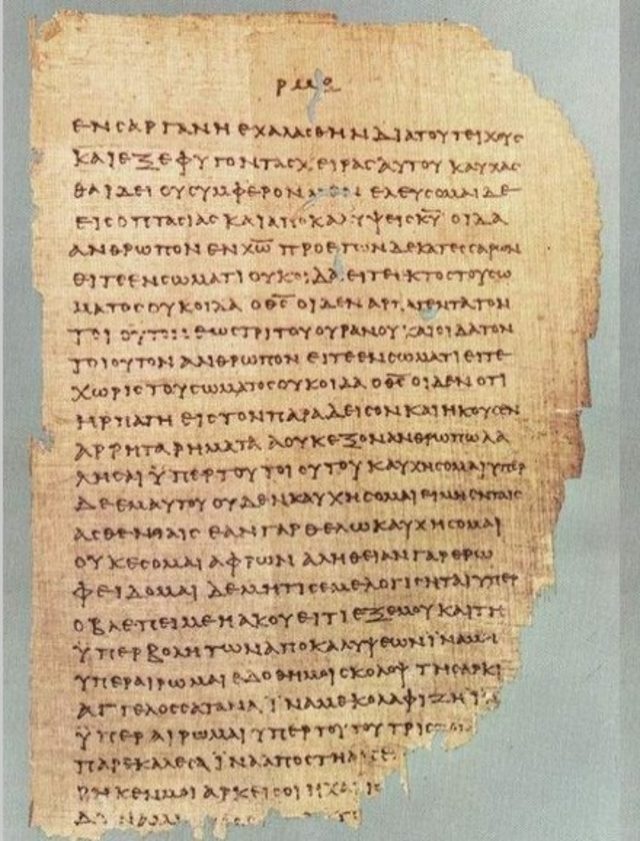 ΕΝϹΑΡΓΑΝΗΕΧΑΛΑϹΘΗΝΔΙΑΤΟΥΤΕΙΧΟΥϹ
ΚΑΙΕΞΕΦΥΓΟΝΤΑϹΧΕΙΡΑϹΑΥΤΟΥΚΑΥΧΑϹ
ΘΑΙΔΕΙΟΥϹΥΜΦΕΡΟΝΜΕΝΕΛΕΥϹΟΜΑΙΔΕ
ΕΙϹΟΠΤΑϹΙΑϹΚΑΙΑΠΟΚΑΛΥΨΕΙϹΚ̅Υ̅ΟΙΔΑ
ΑΝΘΡΩΠΟΝΕΝΧ̅Ω̅ΠΡΟΕΤΩΝΔΕΚΑΤΕϹϹΑΡΩΝ
ΕΙΤΕΕΝϹΩΜΑΤΙΟΥΚΟΙΔΑΕΙΤΕΕΚΤΟϹΤΟΥϹΩ
ΜΑΤΟϹΟΥΚΟΙΔΑΟΘ̅Ϲ̅ΟΙΔΕΝΑΡΠΑΓΕΝΤΑΤΟΝ
ΤΟΙΟΥΤΟΝΕΩϹΤΡΙΤΟΥΟΥΡΑΝΟΥΚΑΙΟΙΔΑΤΟΝ
ΤΟΙΟΥΤΟΝΑΝΘΡΩΠΟΝΕΙΤΕΕΝϹΩΜΑΤΙΕΙΤΕ
ΧΩΡΙϹΤΟΥϹΩΜΑΤΟϹΟΥΚΟΙΔΑΟΘ̅Ϲ̅ΟΙΔΕΝΟΤΙ
ΗΡΠΑΓΗΕΙϹΤΟΝΠΑΡΑΔΕΙϹΟΝΚΑΙΗΚΟΥϹΕΝ
ΑΡΡΗΤΑΡΗΜΑΤΑΑΟΥΚΕΞΟΝΑΝΘΡΩΠΩΛΑ
ΛΗϹΑΙΫΠΕΡΤΟΥΤΟΙΟΥΤΟΥΚΑΥΧΗϹΟΜΑΙΥΠΕΡ
ΔΕΕΜΑΥΤΟΥΟΥΔΕΝΚΑΥΧΗϹΟΜΑΙΕΙΜΗΕΝΤΑΙϹ
ΑϹΘΕΝΙΑΙϹΕΑΝΓΑΡΘΕΛΩΚΑΥΧΗϹΟΜΑΙ
ΟΥΚΕϹΟΜΑΙΑΦΡΩΝΑΛΗΘΕΙΑΝΓΑΡΕΡΩ
ΦΕΙΔΟΜΑΙΔΕΜΗΤΙϹΕΜΕΛΟΓΙϹΗΤΑΙΥΠΕΡ
ΟΒΛΕΠΕΙΜΕΗΑΚΟΥΕΙΤΙΕΞΕΜΟΥΚΑΙΤΗ
ΫΠΕΡΒΟΛΗΤΩΝΑΠΟΚΑΛΥΨΕΩΝΪΝΑΜΗ
ΥΠΕΡΑΙΡΩΜΑΙΕΔΟΘΗΜΟΙϹΚΟΛΟΨΤΗϹΑΡΚΙ
ΑΓΓΕΛΟϹϹΑΤΑΝΑΪΝΑΜΕΚΟΛΑΦΙΖΗΪ
ΫΠΕΡΑΙΡΩΜΑΙΥΠΕΡΤΟΥΤΟΥΤΡΙϹ
ΠΑΡΕΚΑΛΕϹΑΪΝΑΑΠΟϹΤΗ
ΡΗΚΕΝΜΟΙΑΡΚΕΙϹΟΙΗΧΑΡΙϹ